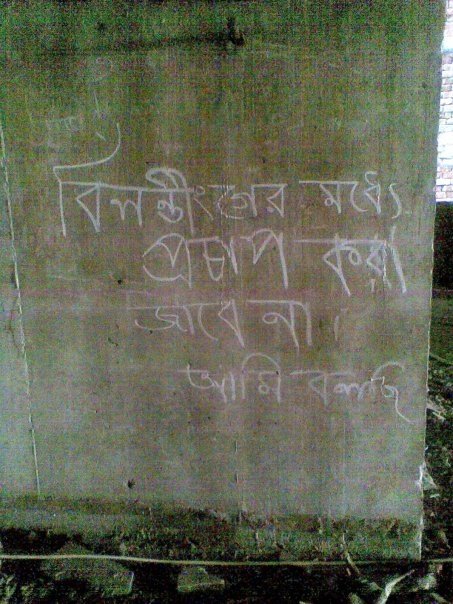 বিলন্ডীংগের মধ্যে
প্রচাপ করা
জাবে না।
আমি বলছি